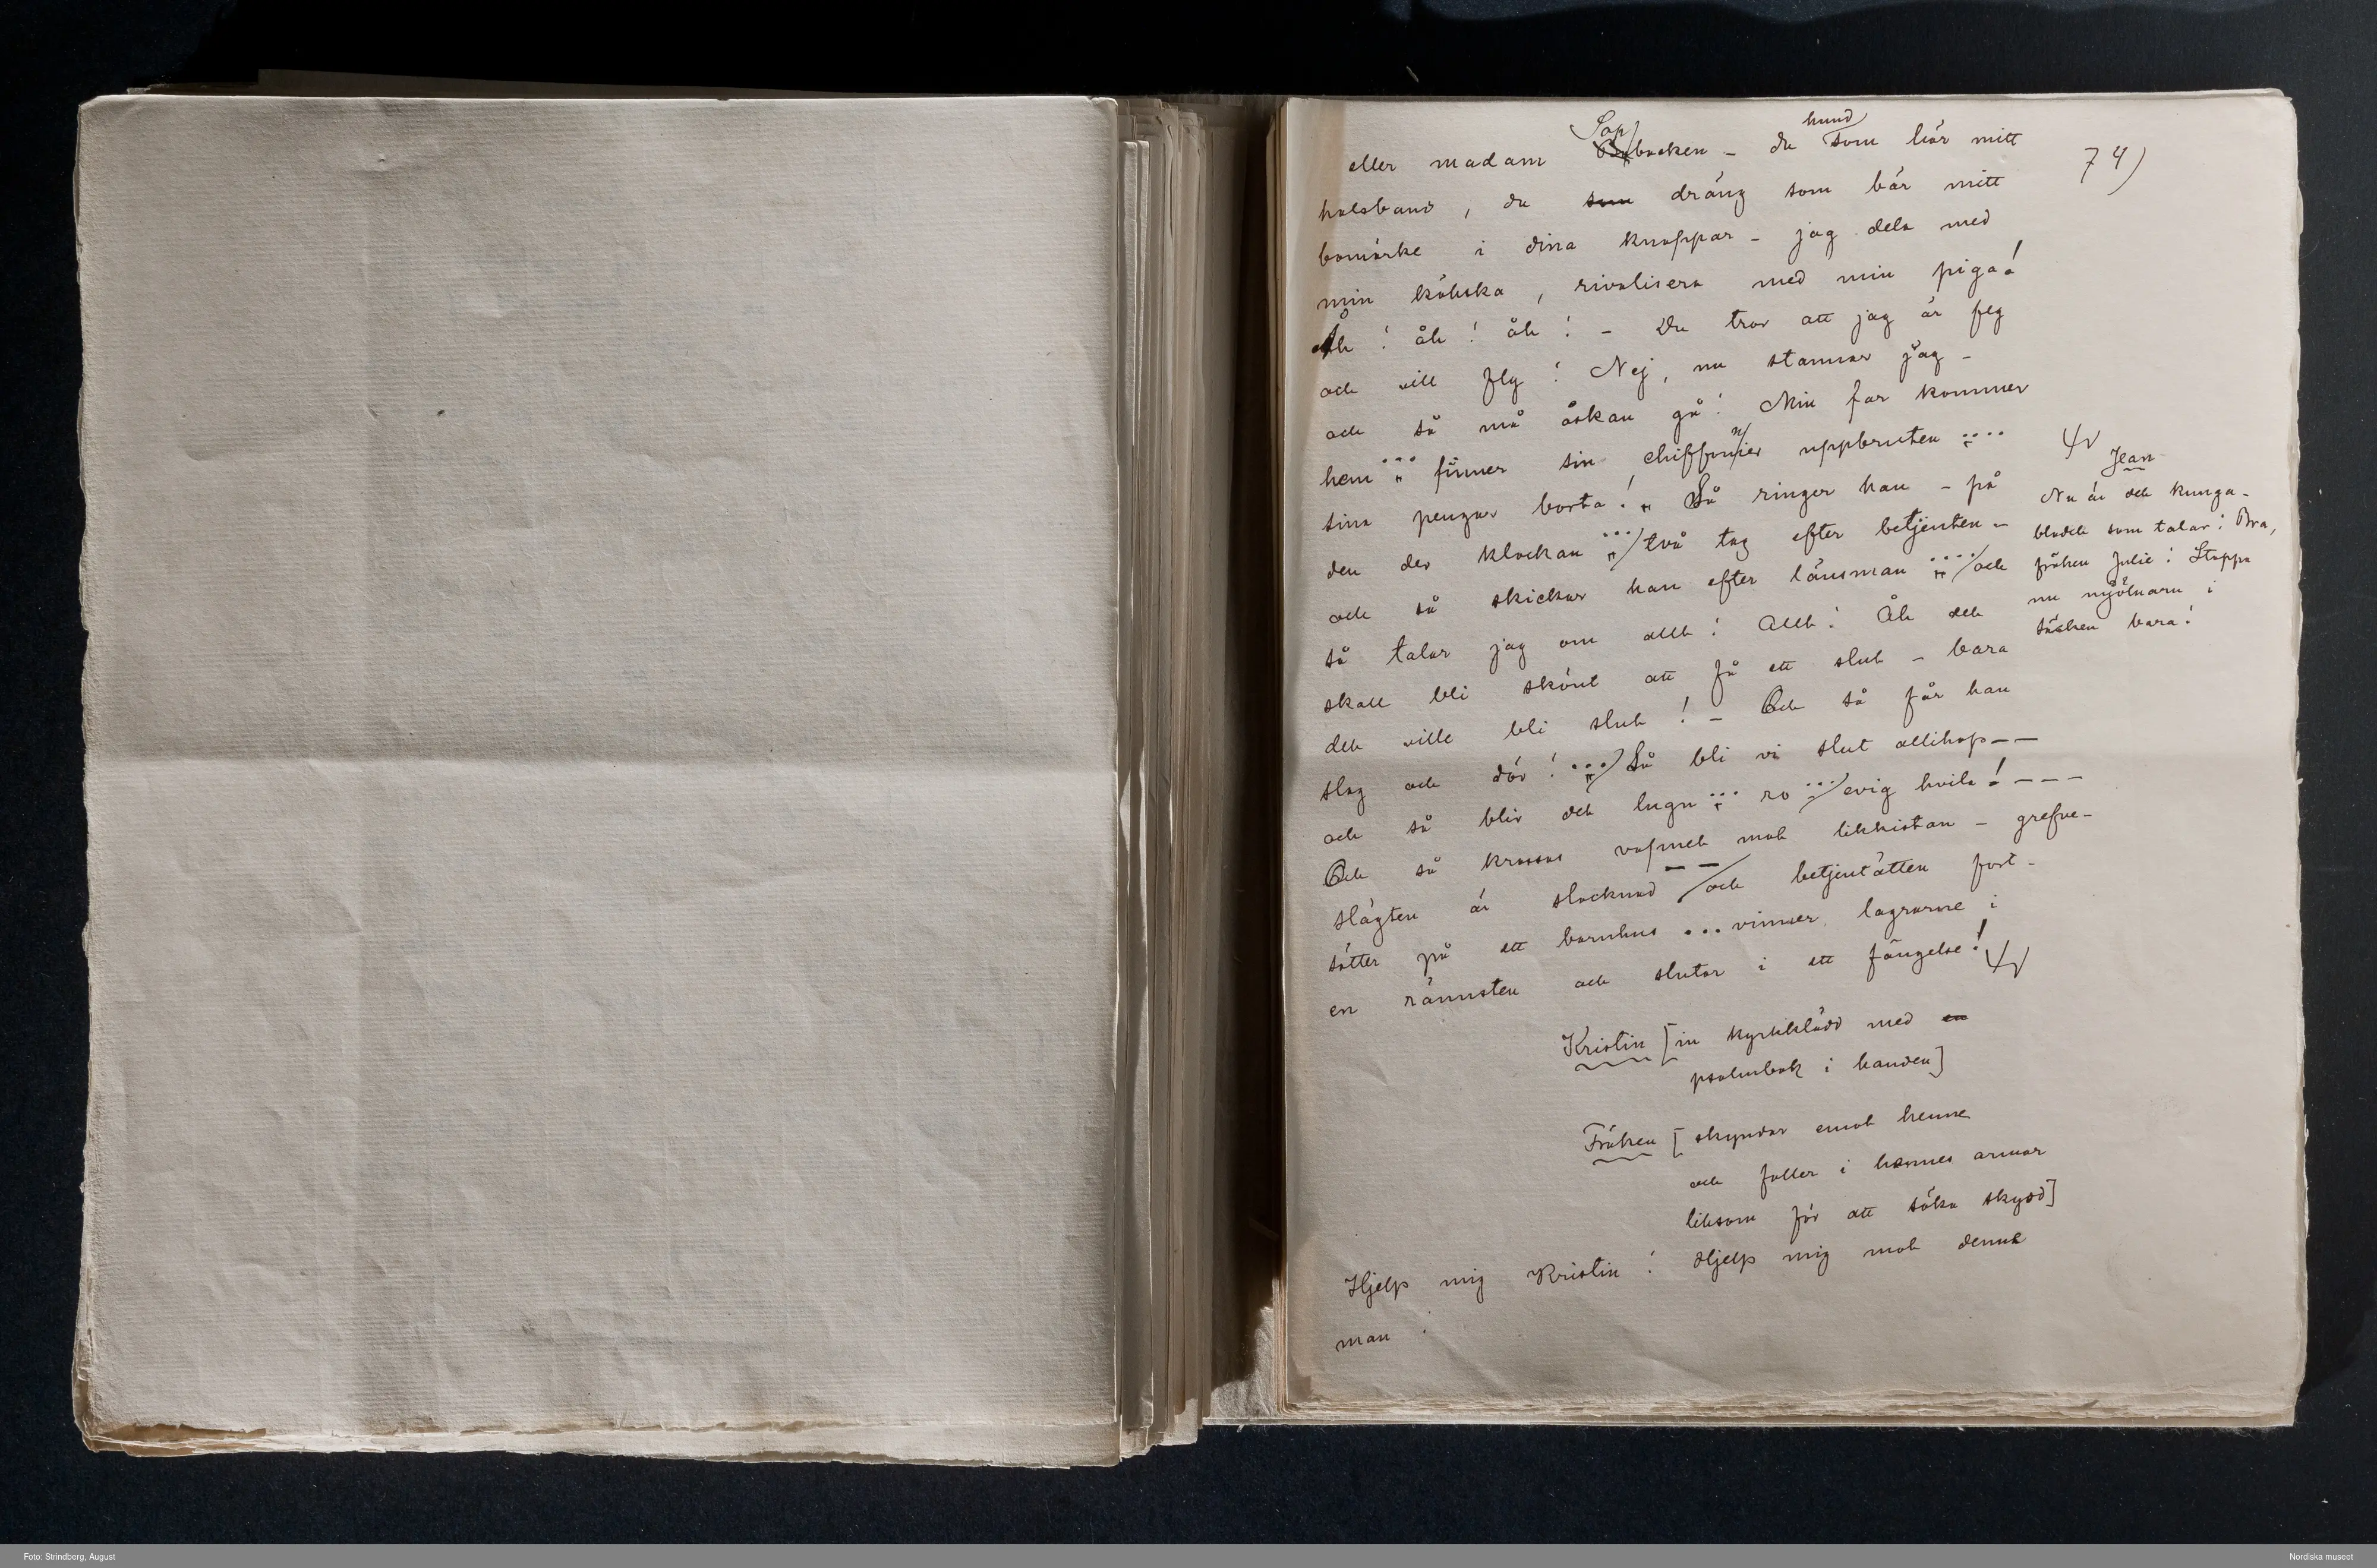 74)
eller madam Sopbacken – du hund som bär mitt
halsband, du som dräng som bär mitt
bomärke i dina knappar – jag dela med
min kökska, rivalisera med min piga!
Åh! åh! åh! – Du tror att jag är feg
och vill fly! Nej, nu stannar jag –
och så må åskan gå! Min far kommer
hem ... finner sin chiffonier uppbruten ....
sina pengar borta! Så ringer han – på
den der klockan ... två tag efter betjenten –
och så skickar han efter länsman .... och
så talar jag om allt! Allt! Åh det
skall bli skönt att få ett slut – bara
det ville bli slut! – Och så får han
slag och dör! ... Så bli vi slut allihop – –
och så blir det lugn ... ro ... evig hvila! – – –
Och så krossas vapnet mot likkistan – grefve-
slägten är slocknad – – och betjentätten fort-
sätter på ett barnhus ... vinner lagrarne i
en rännsten och slutar i ett fängelse!
Jean
Nu är det kunga-
blodet som talar! Bra,
fröken Julie! Stoppa
nu mjölnarn i
säcken bara!
Kristin [in kyrkklädd med en
psalmbok i handen]
Fröken [skyndar emot henne
och faller i hennes armar
liksom för att söka skydd]
Hjelp mig Kristin! Hjelp mig mot denna
man!
Foto: Strindberg, August
Nordiska museet